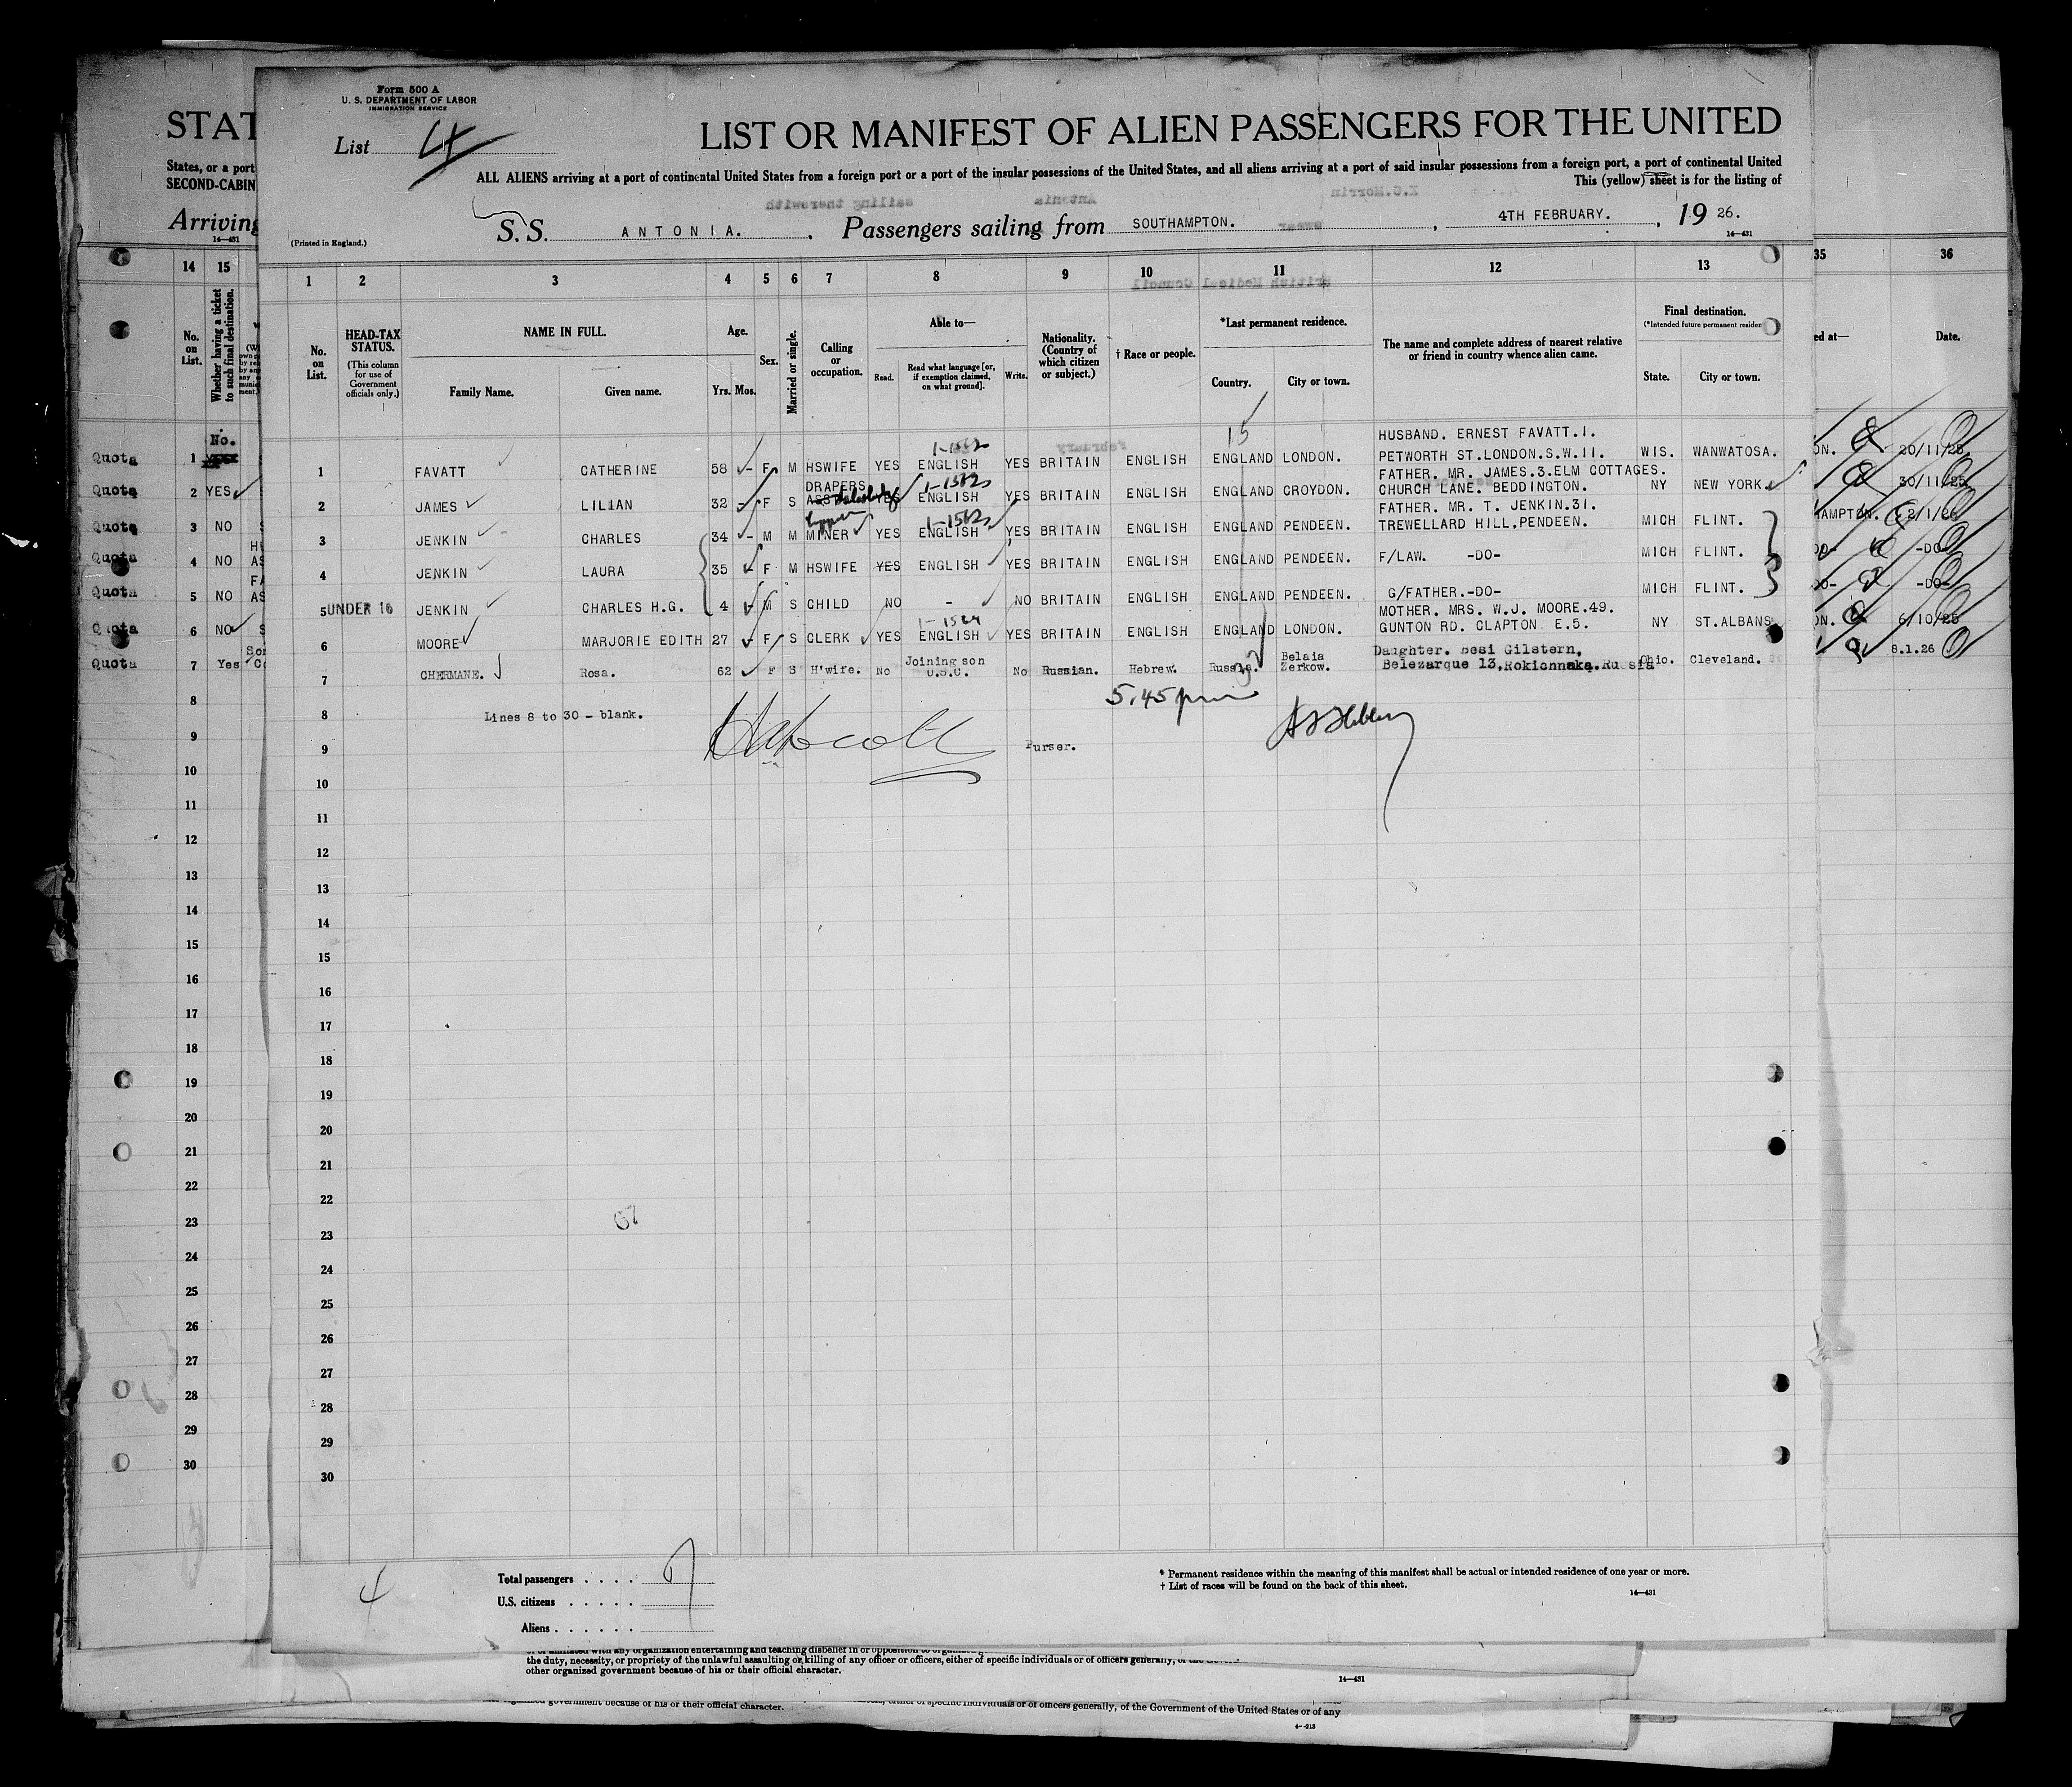 Form 500 A
U. S. DEPARTMENT OF LABOR
IMMIGRATION SERVICE
List 4
LIST OR MANIFEST OF ALIEN PASSENGERS FOR THE UNITED
ALL ALIENS arriving at a port of continental United States from a foreign port or a port of the insular possessions of the United States, and all aliens arriving at a port of said insular possessions from a foreign port, a port of continental United
This (yellow) sheet is for the listing of
S. S. ANTONIA. , Passengers sailing from SOUTHAMPTON. , 4TH FEBRUARY. , 19 26.
(Printed in England.)
14—431
STAT
States, or a port
SECOND-CABIN
Arriving
14—431
14 15
No. on List.
Whether having a ticket to such final destination.
1 2 3 4 5 6 7 8 9 10 11 12 13
No. on List.
HEAD-TAX STATUS.
(This column for use of Government officials only.)
NAME IN FULL.
Family Name. Given name.
Age.
Yrs. Mos.
Sex.
Married or single.
Calling or occupation.
Able to—
Read. Read what language [or, if exemption claimed, on what ground]. Write.
Nationality. (Country of which citizen or subject.)
† Race or people.
*Last permanent residence.
Country. City or town.
The name and complete address of nearest relative or friend in country whence alien came.
Final destination.
(*Intended future permanent residen
State. City or town.
35 36
ed at— Date.
15
1-1562
HUSBAND. ERNEST FAVATT.1.
Quota 1 No.
1 FAVATT CATHERINE 58 - F M HSWIFE YES ENGLISH YES BRITAIN ENGLISH ENGLAND LONDON. PETWORTH ST.LONDON.S.W.11. WIS. WANWATOSA.
ON. 20/11/25
DRAPERS 1-1562 FATHER. MR. JAMES.3.ELM COTTAGES.
Quota 2 YES
2 JAMES LILIAN 32 - F S ASST YES ENGLISH YES BRITAIN ENGLISH ENGLAND CROYDON. CHURCH LANE. BEDDINGTON. NY NEW YORK.
30/11/25
1-1562 FATHER. MR. T. JENKIN.31.
Quota 3 NO
3 JENKIN CHARLES 34 - M M MINER YES ENGLISH YES BRITAIN ENGLISH ENGLAND PENDEEN. TREWELLARD HILL,PENDEEN. MICH FLINT.
HAMPTON. 2/1/26
Quota 4 NO
4 JENKIN LAURA 35 - F M HSWIFE YES ENGLISH YES BRITAIN ENGLISH ENGLAND PENDEEN. F/LAW. -DO- MICH FLINT.
DO- -DO-
Quota 5 NO
5 UNDER 16 JENKIN CHARLES H.G. 4 - M S CHILD NO - NO BRITAIN ENGLISH ENGLAND PENDEEN. G/FATHER.-DO- MICH FLINT.
DO- -DO-
1-1564 MOTHER. MRS. W.J. MOORE.49.
Quota 6 NO
6 MOORE MARJORIE EDITH 27 - F S CLERK YES ENGLISH YES BRITAIN ENGLISH ENGLAND LONDON. GUNTON RD. CLAPTON E.5. NY ST.ALBANS
ON. 6/10/25
Joining son Belaia Daughter. Besi Gilstern,
Quota 7 Yes
7 CHERMANE. Rosa. 62 F S H'wife. No U.S.C. No Russian. Hebrew. Russia. Zerkow. Belezarque 13,Rokionnaka.Russia Ohio. Cleveland.
8.1.26
5.45 pm
8 Lines 8 to 30 - blank.
9 Purser.
10
11
12
13
14
15
16
17
18
19
20
21
22
23
24
25
26
27
28
29
30
8
9
10
11
12
13
14
15
16
17
18
19
20
21
22
23
24
25
26
27
28
29
30
4
Total passengers . . . .
U.S. citizens . . . . . .
Aliens . . . . . .
* Permanent residence within the meaning of this manifest shall be actual or intended residence of one year or more.
† List of races will be found on the back of this sheet.
14—431
the duty, necessity, or propriety of the unlawful assaulting or killing of any officer or officers, either of specific individuals or of officers generally, of the
other organized government because of his or their official character.
14—431
government because of his or their official character.
either of specific individuals or of officers generally, of the Government of the United States or of any